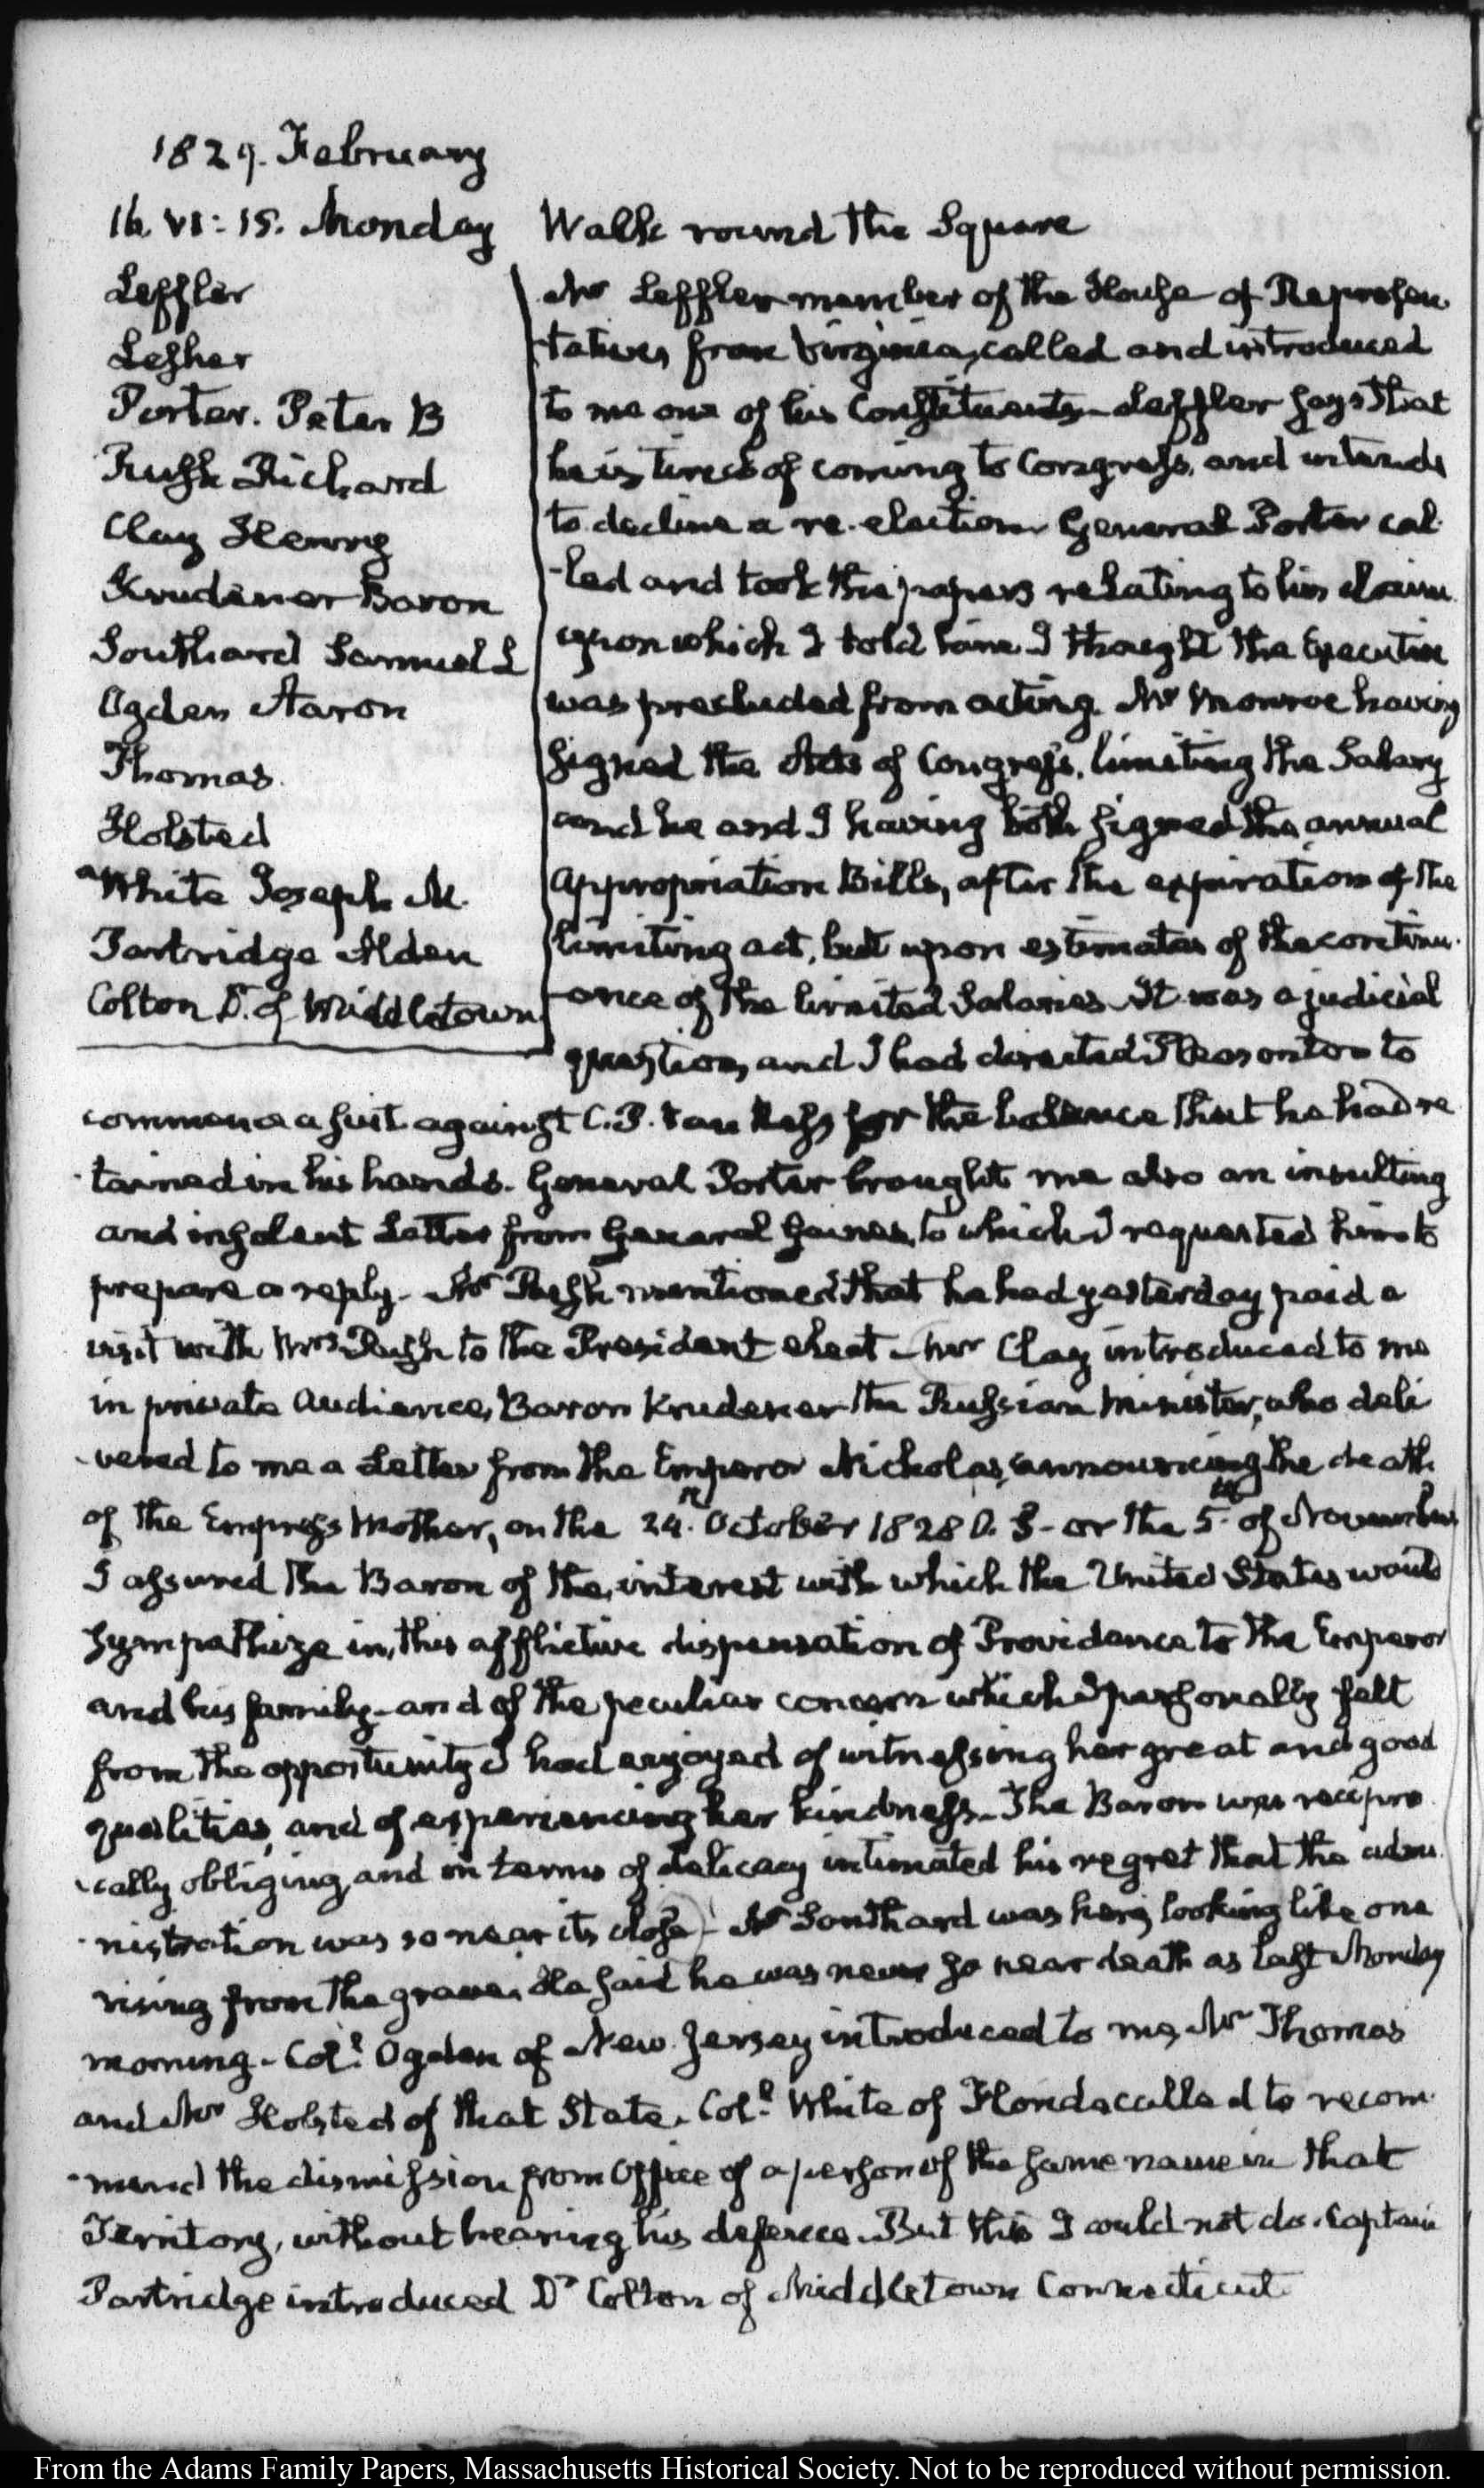 1829. February
16. VI: 15. Monday
Walk round the Square
Leffler
Lesher
Porter. Peter B
Rush Richard
Clay Henry
Krudener Baron
Southard Samuel L
Ogden Aaron
Thomas
Holsted
White Joseph M.
Partridge Alden
Colton Dr. of Middletown
Mr Leffler member of the House of Represen
tatives from Virginia, called and introduced
to me one of his Constituents. Leffler says that
he is tired of coming to Congress, and intends
to decline a re-election. General Porter cal
-led and took the papers relating to his claim
upon which I told him I thought the Executive
was precluded from acting. Mr Monroe having
signed the Acts of Congress, limiting the Salary
and he and I having both signed the annual
Appropriation Bills, after the expiration of the
limiting act, but upon estimates of the continu-
-ance of the limited Salaries. It was a judicial
question, and I had directed Pleasonton to
commence a suit against C. P. Van Ness for the balance that he had re
-tained in his hands. General Porter brought me also an insulting
and insolent Letter from General Gaines, to which I requested him to
prepare a reply. Mr Rush mentioned that he had yesterday paid a
visit with Mrs Rush to the President elect. Mr Clay introduced to me
in private Audience, Baron Krudener the Russian Minister, who deli
-vered to me a Letter from the Emperor Nicholas, announcing the death
of the Empress Mother, on the 24th. October 1828 O. S. or the 5th. of November
I assured the Baron of the interest with which the United States would
sympathize in this afflictive dispensation of Providence to the Emperor
and his family, and of the peculiar concern which I personally felt
from the opportunity I had enjoyed of witnessing her great and good
qualities, and of experiencing her kindness. The Baron was recipro
-cally obliging, and in terms of delicacy intimated his regret that the admi
-nistration was so near its close. Mr Southard was here, looking like one
rising from the grave. He said he was never so near death as last Monday
morning. Coll. Ogden of New-Jersey introduced to me, Mr Thomas
and Mr Holsted of that State. Coll. White of Florida called to recom
-mend the dismission from Office of a person of the same name in that
Territory, without hearing his defence. But this I could not do. Captain
Partridge introduced Dr Colton of Middletown Connecticut
From the Adams Family Papers, Massachusetts Historical Society. Not to be reproduced without permission.